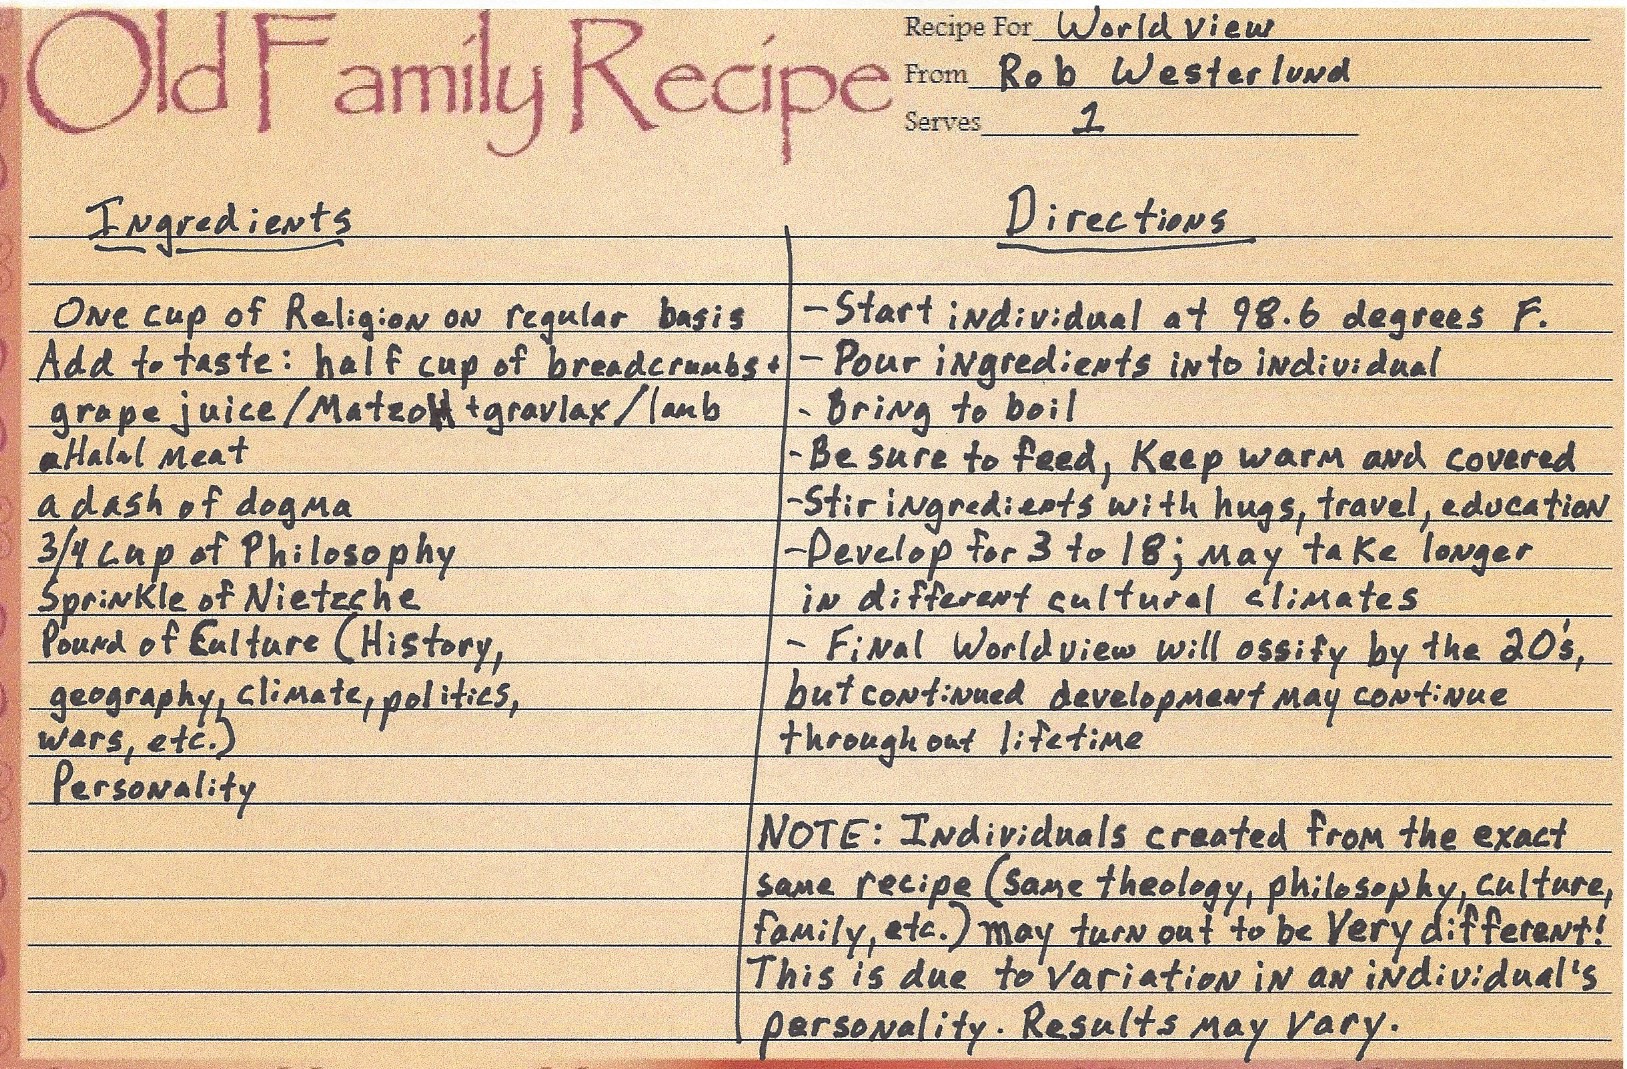 Old Family Recipe
Recipe For World view
From Rob Westerlund
Serves 1
Ingredients
One cup of Religion on regular basis
Add to taste: half cup of breadcrumbs +
grape juice/MatzoH + gravlax/lamb
Halal meat
a dash of dogma
3/4 cup of Philosophy
Sprinkle of Nietzche
Pound of Culture (History,
geography, climate, politics,
wars, etc.)
Personality
Directions
- Start individual at 98.6 degrees F.
- Pour ingredients into individual
- Bring to boil
- Be sure to feed, Keep warm and covered
- Stir ingredients with hugs, travel, education
- Develop for 3 to 18; may take longer
in different cultural climates
- Final Worldview will ossify by the 20's,
but continued development may continue
throughout lifetime
NOTE: Individuals created from the exact
same recipe (same theology, philosophy, culture,
family, etc.) may turn out to be Very different!
This is due to variation in an individual's
personality. Results may vary.